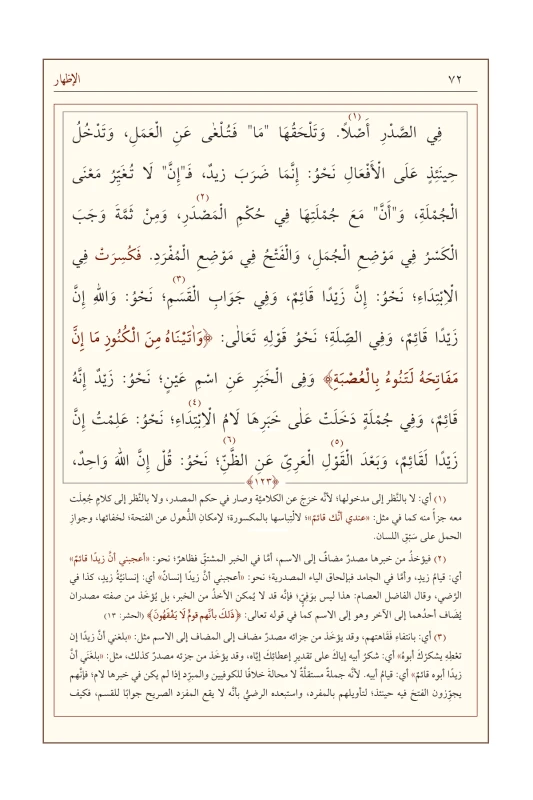 ٧٢ الإظهار
فِي الصَّدْرِ أَصْلًا.(١) وَتَلْحَقُهَا "مَا" فَتُلْغٰى عَنِ الْعَمَلِ، وَتَدْخُلُ
حِينَئِذٍ عَلَى الْأَفْعَالِ نَحْوُ: إِنَّمَا ضَرَبَ زيدٌ، فَـ"إِنَّ" لَا تُغَيِّرُ مَعْنَى
الْجُمْلَةِ، وَ"أَنَّ" مَعَ جُمْلَتِهَا فِي حُكْمِ الْمَصْدَرِ،(٢) وَمِنْ ثَمَّةَ وَجَبَ
الْكَسْرُ فِي مَوْضِعِ الْجُمَلِ، وَالْفَتْحُ فِي مَوْضِعِ الْمُفْرَدِ. فَكُسِرَتْ فِي
الْاِبْتِدَاءِ؛ نَحْوُ: إِنَّ زَيْدًا قَائِمٌ، وَفِي جَوَابِ الْقَسَمِ؛(٣) نَحْوُ: وَاللهِ إِنَّ
زَيْدًا قَائِمٌ، وَفِي الصِّلَةِ؛ نَحْوُ قَوْلِهِ تَعَالٰى: ﴿وَاٰتَيْنَاهُ مِنَ الْكُنُوزِ مَا إِنَّ
مَفَاتِحَهُ لَتَنُوءُ بِالْعُصْبَةِ﴾ وَفِى الْخَبَرِ عَنِ اسْمِ عَيْنٍ؛ نَحْوُ: زَيْدٌ إِنَّهُ
قَائِمٌ، وَفِي جُمْلَةٍ دَخَلَتْ عَلٰى خَبَرِهَا لَامُ الْاِبْتِدَاءِ؛(٤) نَحْوُ: عَلِمْتُ إِنَّ
زَيْدًا لَقَائِمٌ، وَبَعْدَ الْقَوْلِ(٥) الْعَرِيِّ عَنِ الظَّنِّ؛(٦) نَحْوُ: قُلْ إِنَّ اللهَ وَاحِدٌ،
﴿١٢٣﴾
(١) أي: لا بالنّظر إلى مدخولها؛ لأنّه خرَج عن الكلاميّة وصار في حكم المصدر، ولا بالنّظر إلى كلامٍ جُعِلَت
معه جزأً منه كما في مثل: «عندي أنّك قائمٌ»؛ لالْتِباسها بالمكسورة؛ لإمكانِ الذُّهول عن الفتحة؛ لخفائها، وجوازِ
الحمل على سَبْق اللسان.
(٢) فيؤخذُ من خبرها مصدرٌ مضافٌ إلى الاسم، أمّا في الخبر المشتقّ فظاهرٌ؛ نحو: «أعجبني أنّ زيدًا قائمٌ»
أي: قيامُ زيدٍ، وأمّا في الجامد فبإلحاق الياء المصدرية؛ نحو: «أعجبني أنَّ زيدًا إنسانٌ» أي: إنسانيّةُ زيدٍ، كذا في
الرَّضي، وقال الفاضل العصام: هذا ليس بوَفِيّ؛ فإنّه قد لا يُمكن الأخذُ من الخبر، بل يُؤخَذ من صفته مصدران
يُضاف أحدُهما إلى الآخر وهو إلى الاسم كما في قوله تعالى: ﴿ذَلكَ بأنّهم قومٌ لَا يَفْقَهُونَ﴾ (الحشر: ١٣)
(٣) أي: بانتفاءِ فَقَاهتهم، وقد يؤخَذ من جزائه مصدرٌ مضاف إلى المضاف إلى الاسم مثل: «بلغني أنّ زيدًا إن
تعْطِهِ يشكرْكَ أبوهُ» أي: شكرُ أبيه إياكَ على تقديرِ إعطائِكَ إيّاه، وقد يؤخَذ من جزئه مصدرٌ كذلك، مثل: «بلغَني أنَّ
زيدًا أبوه قائمٌ» أي: قيامُ أبيه. لأنَّه جملةٌ مستقلَّةٌ لا محالةَ خلافًا للكوفيين والمبرّد إذا لم يكن في خبرها لام؛ فإنَّهم
يجوِّزون الفتحَ فيه حينئذ؛ لتأويلهم بالمفرد، واستبعده الرضيُّ بأنّه لا يقع المفرَد الصريح جوابًا للقسم، فكيف